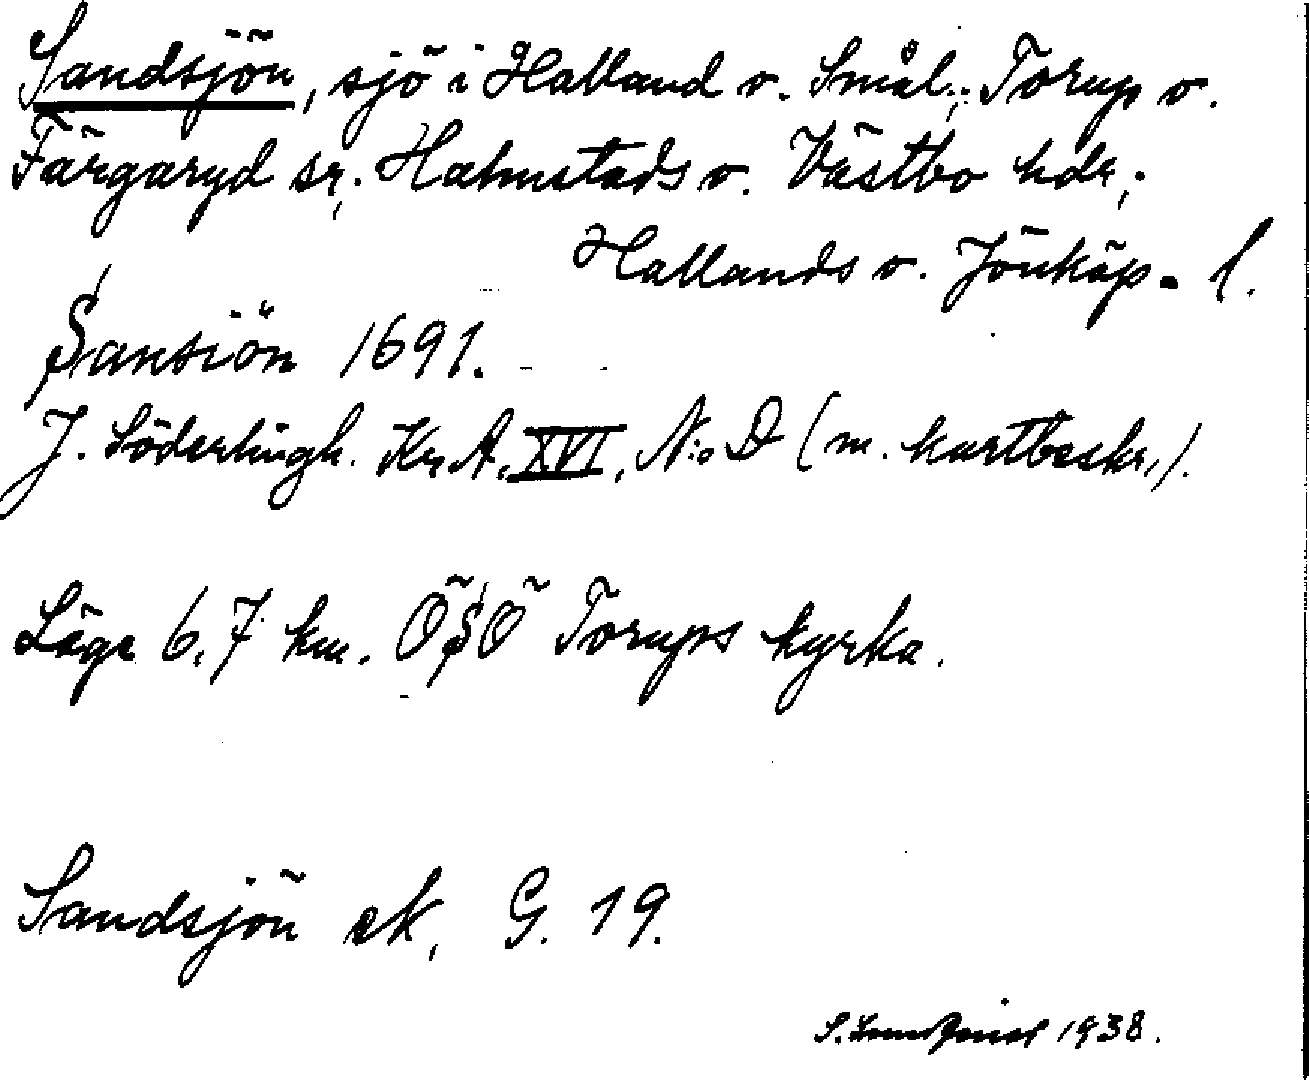 Sandsjön, sjö i Halland o. Smål.; Torup o.
Färgaryd sr; Halmstads o. Västbo hdr;
Hallands o. Jönköp. l.
Sansiön 1691.
J. Söderlingh. Kr.A. XVI, N:o D (m. kartbeskr.).
Läge 6,7 km. ÖSÖ Torups kyrka.
Sandsjön eK, G. 19.
S. 1938.